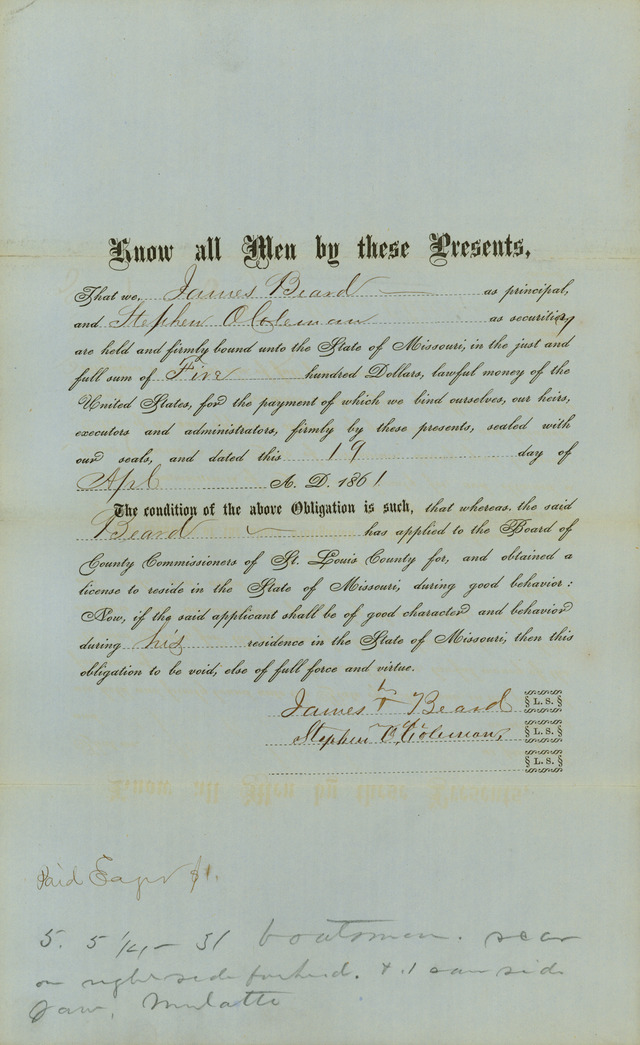 Know all Men by these Presents,
That we, James Beard as principal,
and Stephen O Coleman as security
are held and firmly bound unto the State of Missouri, in the just and
full sum of Five hundred Dollars, lawful money of the
United States, for the payment of which we bind ourselves, our heirs,
executors and administrators, firmly by these presents, sealed with
our seals, and dated this 19 day of
Apl A. D. 1861
The condition of the above Obligation is such, that whereas, the said
Beard has applied to the Board of
County Commissioners of St. Louis County for, and obtained a
license to reside in the State of Missouri, during good behavior:
Now, if the said applicant shall be of good character and behavior
during his residence in the State of Missouri, then this
obligation to be void, else of full force and virtue.
James Beard L. S.
Stephen O. Coleman L. S.
L. S.
Know all Men by these Presents,
Paid $1.
5. 5 1/4 - 31 boatsman. scar
on right side forhed. & 1 same side
Jaw, Mulatto